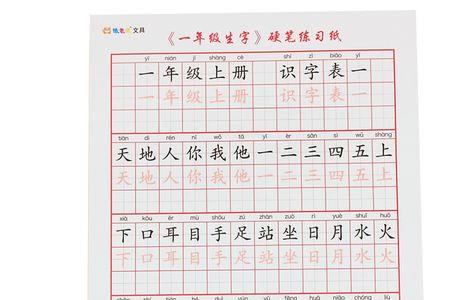 文具
《一年级生字》硬笔练习纸
yī nián jí shàng cè shí zì biǎo yī
一年级上册 识字表一
一年级上册 识字表一
tiān dì rén nǐ wǒ tā yī èr sān sì wǔ shàng
天地人你我他一二三四五上
天地人你我他一二三四五上
xià kǒu ěr mù shǒu zú zhàn zuò rì yuè shuǐ huǒ
下口耳目手足站坐日月水火
下口耳目手足站坐日月水火